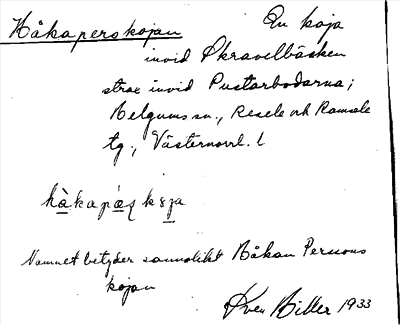 Håkaperskojan
En koja
invid Økravelbäcken
strax invid Pustarbodarna;
Helgums sn., Resele och Ramsele
tg., Västernorrl. l
hàkapáʂ kɞja
Namnet betyder sannolikt Håkan Persons
kojan
1933